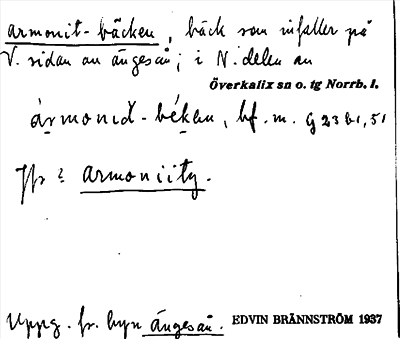 armonit-bäcken, bäck som infaller på
V. sidan av ängesån; i N. delen av
Överkalix sn o. tg Norrb. l.
ármonıd-békan, bf. m. G 23 b1, 51
Jfr ? armoniity.
Uppg. fr. byn ängesån. EDVIN BRÄNNSTRÖM 1937